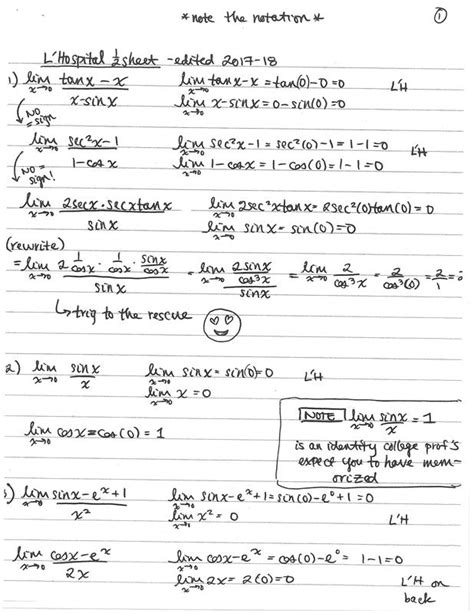 *note the notation* ①
L'Hospital ½ sheet - edited 2017-18
1) lim x→0 (tanx - x)/(x - sinx) lim x→0 tanx - x = tan(0) - 0 = 0 L'H
lim x→0 x - sinx = 0 - sin(0) = 0
NO = sign
lim x→0 (sec²x - 1)/(1 - cosx) lim x→0 sec²x - 1 = sec²(0) - 1 = 1 - 1 = 0 L'H
lim x→0 1 - cosx = 1 - cos(0) = 1 - 1 = 0
NO = sign!
lim x→0 (2secx · secxtanx)/sinx lim x→0 2sec²xtanx = 2sec²(0)tan(0) = 0
lim x→0 sinx = sin(0) = 0
(rewrite)
= lim x→0 (2 1/cosx · 1/cosx · sinx/cosx)/sinx = lim x→0 (2sinx/cos³x)/sinx = lim x→0 2/cos³x = 2/cos³(0) = 2/1 = 2
↳ trig to the rescue
2) lim x→0 sinx/x lim x→0 sinx = sin(0) = 0 L'H
lim x→0 x = 0
lim x→0 cosx = cos(0) = 1
NOTE lim x→0 sinx/x = 1
is an identity college prof's
expect you to have mem-
orized
3) lim x→0 (sinx - eˣ + 1)/x² lim x→0 sinx - eˣ + 1 = sin(0) - e⁰ + 1 = 0
lim x→0 x² = 0 L'H
lim x→0 (cosx - eˣ)/2x lim x→0 cosx - eˣ = cos(0) - e⁰ = 1 - 1 = 0
lim x→0 2x = 2(0) = 0 L'H on
back